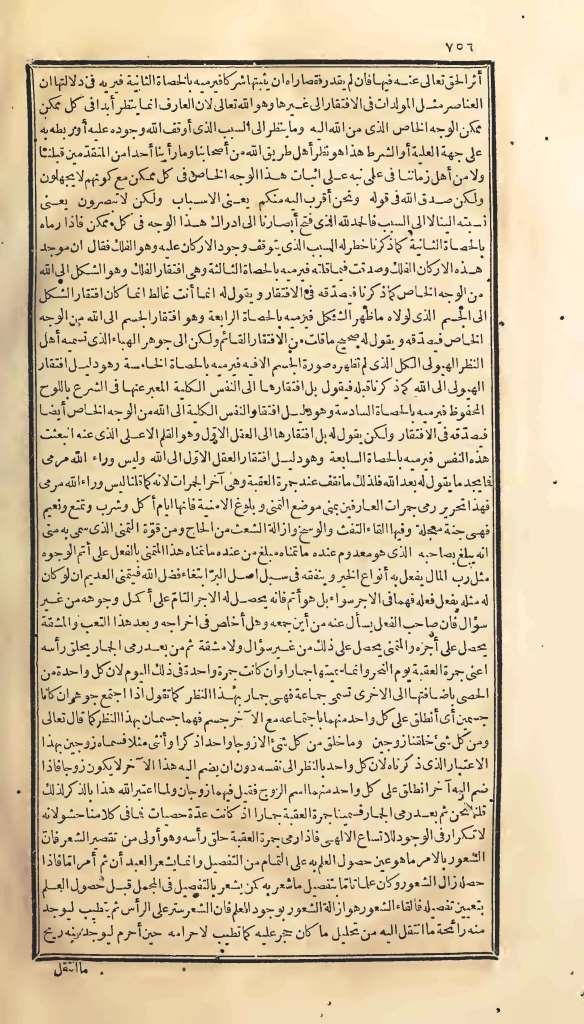 ٧٥٦
أثر الحق تعالى عنه فيها فان لم يقدر فقصاراه ان يثبتها شركا فيرميه بالحصاة الثانية فيريه في دلالتها ان
العناصر مثل المولدات في الافتقار الى غيرها وهو الله تعالى لان العارف انما ينظر أبدا في كل ممكن
ممكن الوجه الخاص الذى من الله اليه وما ينظر الى السبب الذى أوقف الله وجوده عليه أو يربطه به
على جهة العلية أو الشرط هذا هو نظر أهل طريق الله من أصحابنا وما رأينا أحدا من المتقدمين قبلنا
ولا من أهل زماننا في علمى نبه على اثبات هذا الوجه الخاص فى كل ممكن مع كونهم لا يجهلون
ولكن صدق الله في قوله ونحن أقرب اليه منكم يعنى الاسباب ولكن لا تبصرون يعنى
نسبته الينا لا الى السبب فالحمد لله الذى فتح أبصارنا الى ادراك هذا الوجه فى كل ممكن فاذا رماه
بالحصاة الثانية كما ذكرنا خطر له السبب الذى يتوقف وجود الاركان عليه وهو الفلك فقال ان موجد
هذه الاركان الفلك وصدقت فيما قلته فيرميه بالحصاة الثالثة وهى افتقار الفلك وهو الشكل الى الله
من الوجه الخاص كما ذكرنا فيصدقه فى الافتقار ويقول له انما أنت غالط انما كان افتقار الشكل
الى الجسم الذى لولاه ما ظهر الشكل فيرميه بالحصاة الرابعة وهو افتقار الجسم الى الله من الوجه
الخاص فيصدقه ويقول له صحيح ما قلت من الافتقار القائم ولكن الى جوهر الهباء الذى تسميه أهل
النظر الهيولى الكل الذى لم تظهر صورة الجسم الا فيه فيرميه بالحصاة الخامسة وهو دليل افتقار
الهيولى الى الله كما ذكرنا قبله فيقول بل افتقارها الى النفس الكلية المعبر عنها فى الشرع باللوح
المحفوظ فيرميه بالحصاة السادسة وهو دليل افتقار النفس الكلية الى الله من الوجه الخاص أيضا
فيصدقه فى الافتقار ولكن يقول له بل افتقارها الى العقل الاول وهو القلم الاعلى الذى عنه انبعثت
هذه النفس فيرميه بالحصاة السابعة وهو دليل افتقار العقل الاول الى الله وليس وراء الله مرمى
فما يجد ما يقول له بعد الله فلذلك ما تقف عند جمرة العقبة وهى آخر الجمرات لانه كما قلنا ليس وراء الله مرمى
فهذا تحرير رمى جمرات العارفين بمنى موضع التمنى وبلوغ الامنية فانها ايام أكل وشرب وتمتع ونعيم
فهى جنة معجلة وفيها القاء التفث والوسخ وازالة الشعث من الحاج ومن قوة التمنى الذى سمى به منى
انه يبلغ بصاحبه الذى هو معدوم عنده ما تمناه مبلغ من عنده ما تمناه هذا المتمنى بالفعل على أتم الوجوه
مثل رب المال يفعل به أنواع الخير وينفقه فى سبيل اصل البر ابتغاء فضل الله فيتمنى العديم ان لو كان
له مثله يفعل فعله فهما فى الاجر سواء بل هو أتم فانه يحصل له الاجر التام على أكمل وجوهه من غير
سؤال فان صاحب الفعل يسأل عنه من أين جمعه وهل أخلص فى اخراجه وبعد هذا التعب والمشقة
يحصل على أجره والمتمنى يحصل على ذلك من غير سؤال ولا مشقة ثم من بعد رمى الجمار يحلق رأسه
اعنى جمرة العقبة يوم النحر وانما سميتها جمارا وان كانت جمرة واحدة فى ذلك اليوم لان كل واحدة من
الحصى باضافتها الى الاخرى تسمى جماعة فهى جمار بهذا النظر كما تقول اذا اجتمع جوهران كانا
جسمين أى انطلق على كل واحد منهما باجتماعه مع الآخر جسم فهما جسمان بهذا النظر كما قال تعالى
ومن كل شئ خلقنا زوجين وما خلق من كل شئ الا زوجا واحدا ذكرا وأنثى مثلا فسماه زوجين بهذا
الاعتبار الذى ذكرناه لان كل واحد بالنظر الى نفسه دون ان يضم اليه هذا الآخر لا يكون زوجا فاذا
ضم اليه آخر انطلق على كل واحد منهما اسم الزوج فقيل فيهما زوجان ولما اعتبر الله هذا بالذكر لذلك
قلنا نحن ثم بعد رمى الجمار فسمينا جمرة العقبة جمارا اذ كانت عدة حصيات فما فى كلامنا حشو لانه
لا تكرار فى الوجود للاتساع الالهى فاذا رمى جمرة العقبة حلق رأسه وهو أولى من تقصير الشعر فان
الشعور بالامر ما هو عين حصول العلم به على التمام من التفصيل وانما يشعر العبد أن ثم أمرا ما فاذا
حصله زال الشعور وكان علما تاما بتفصيل ما شعر به كمن يشعر بالتفصيل فى المجمل قبل حصول العلم
بتعيين تفصيله فالقاء الشعور هو ازالة الشعور بوجود العلم فان الشعر ستر على الرأس ثم يتطيب ليوجد
منه رائحة ما انتقل اليه من تحليل ما كان حجر عليه كما تطيب لاحرامه حين أحرم ليوجد منه ريح
ما انتقل